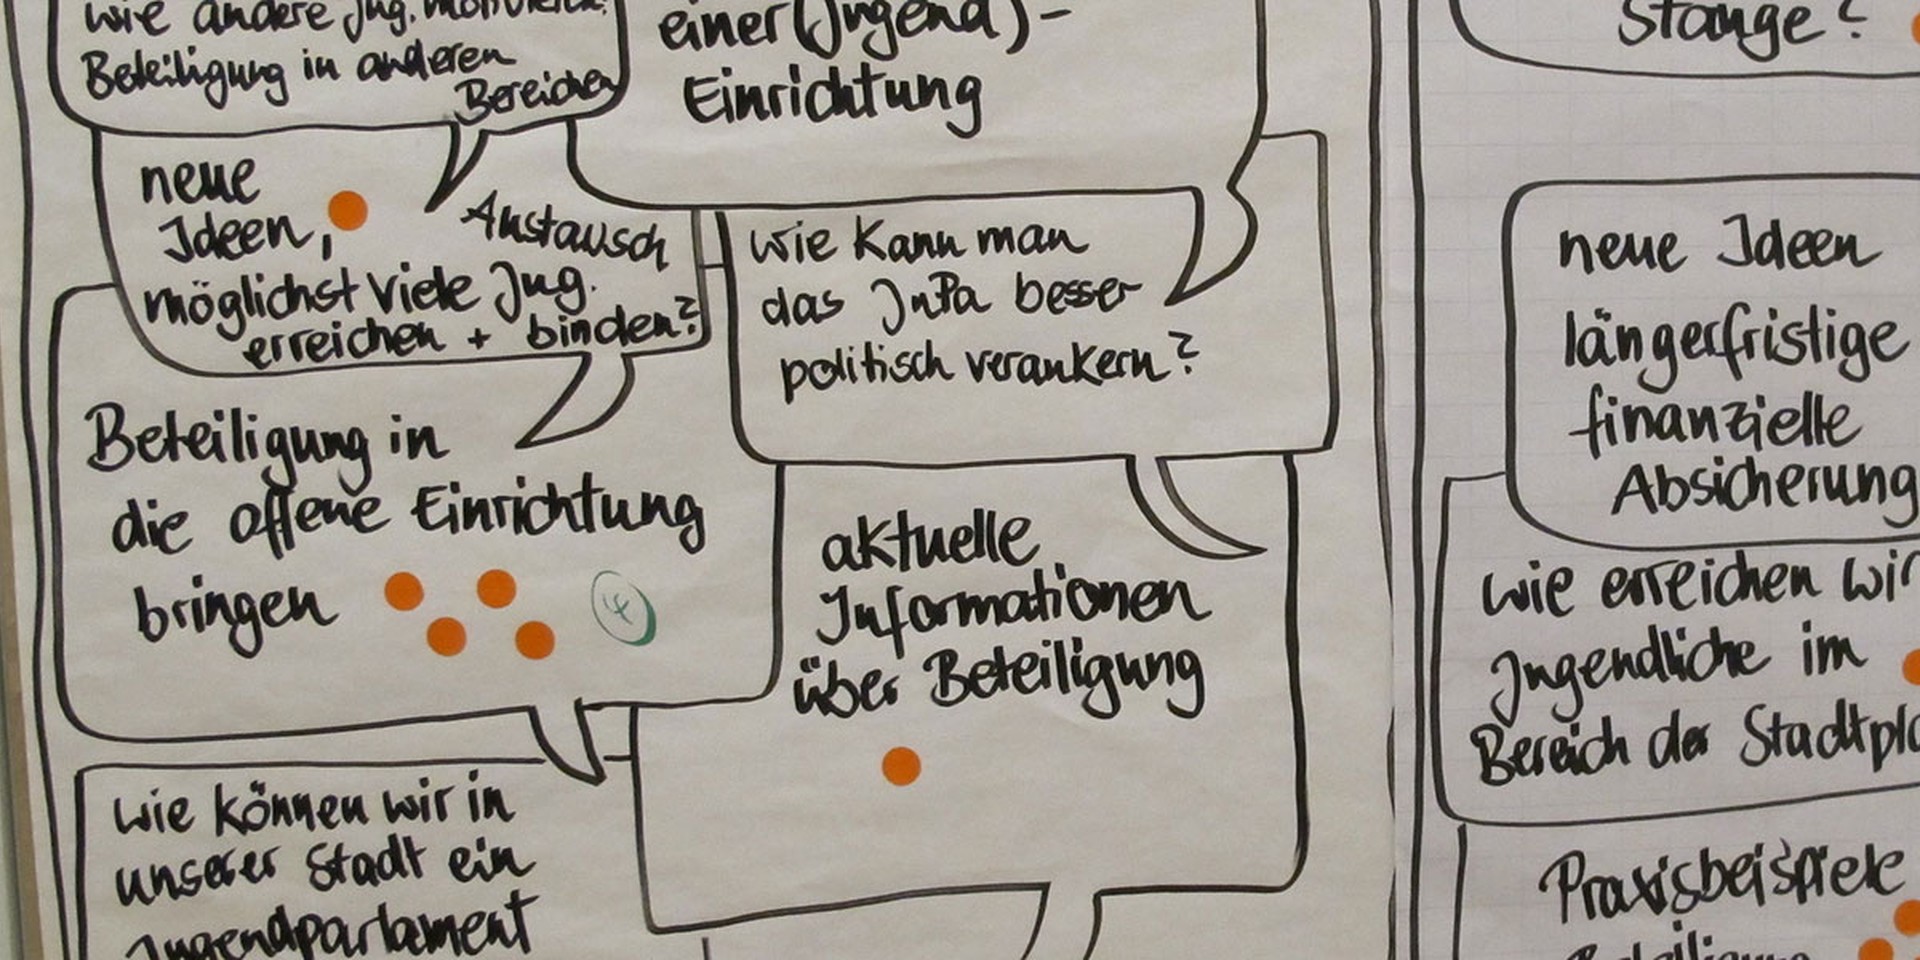 wie andere Jug. motivieren?
Beteiligung in anderen
Bereichen
einer (Jugend)-
Einrichtung
neue
Ideen,
Austausch
möglichst viele Jug.
erreichen + binden?
wie kann man
das JuPa besser
politisch verankern?
Beteiligung in
die offene Einrichtung
bringen
4
aktuelle
Informationen
über Beteiligung
wie können wir in
unserer Stadt ein
Jugendparlament
Stange?
neue Ideen
längerfristige
finanzielle
Absicherung
wie erreichen wir
Jugendliche im
Bereich der Stadtpla
Praxisbeispiele
Beteiligung